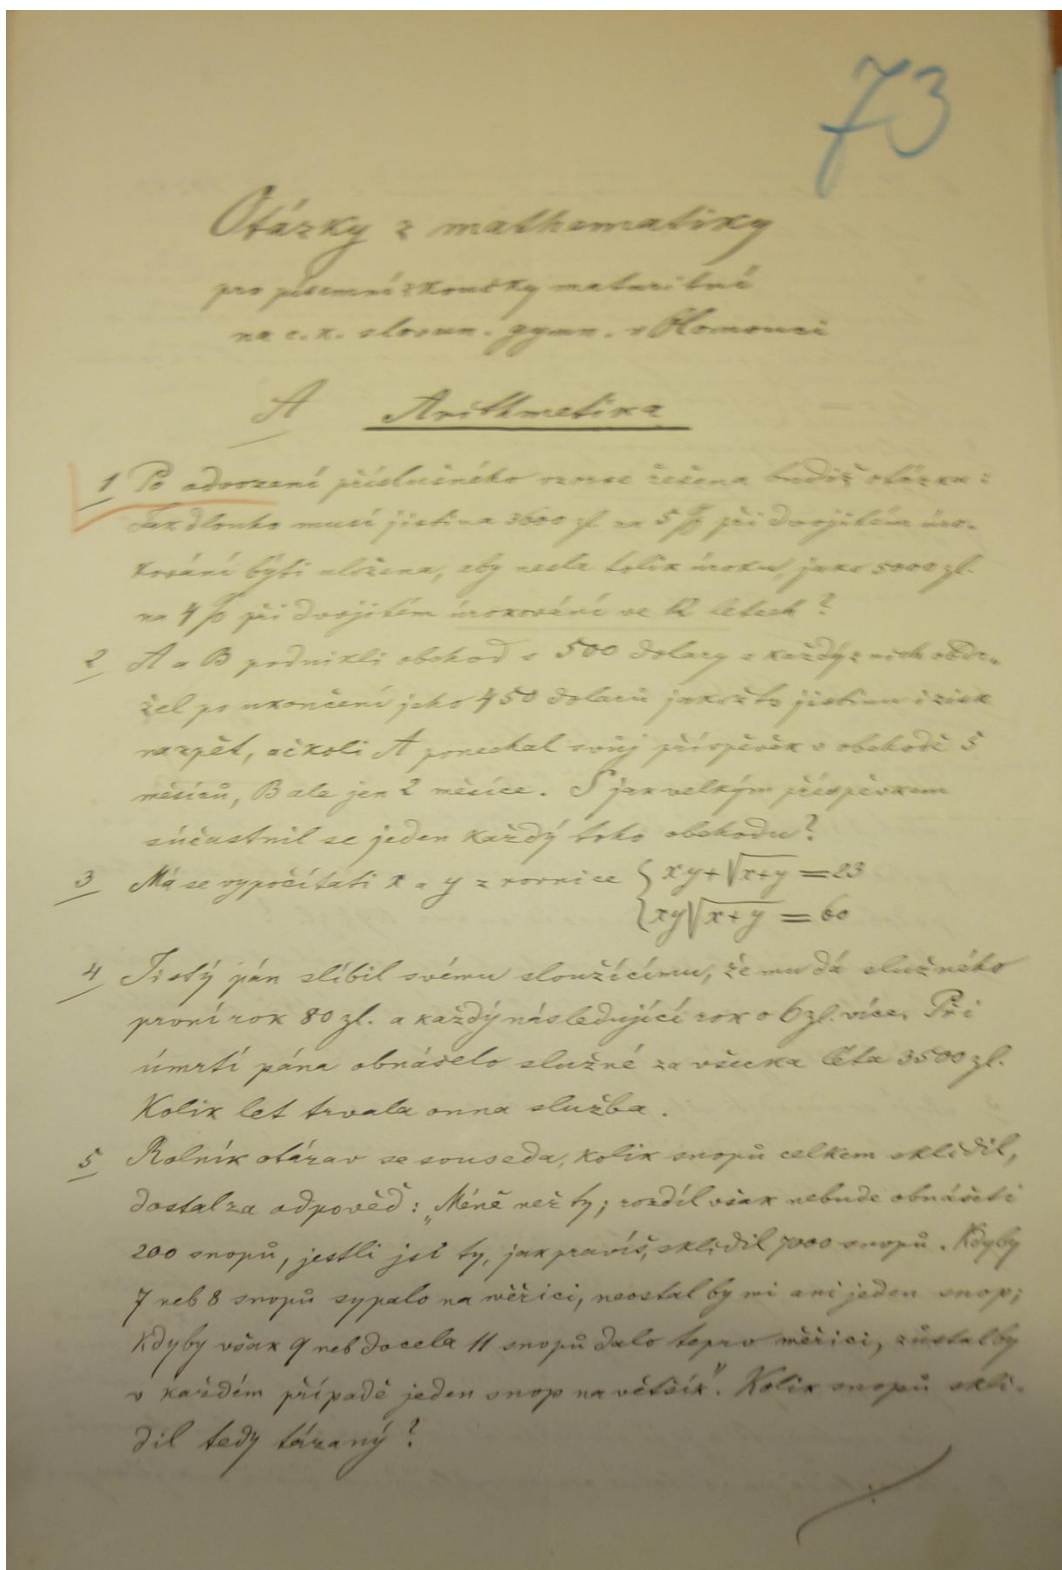 73
Otázky z mathematiky
pro písemní zkoušky maturitné
na c. k. slovan. gymn. v Olomouci
A Arithmetika
1 Po odvození příslušného vzorce řešena budiž otázka:
Jak dlouho musí jistina 3600 zl na 5% při dvojitém úro-
kování býti uložena, aby nesla tolik úroku, jako 5000 zl.
na 4% při dvojitém úrokování ve 12 letech?
2 A a B podnikli obchod s 500 dolary a každý z nich obdr-
žel po ukončení jeho 450 dolarů jakožto jistinu i zisk
nazpět, ačkoli A ponechal svůj příspěvek v obchodě 5
měsíců, B ale jen 2 měsíce. S jak velkým příspěvkem
súčastnil se jeden každý toho obchodu?
3 Má se vypočítati x a y z rovnice { xy+√x+y = 23
{ xy√x+y = 60
4 Jistý pán slíbil svému sloužícímu, že mu dá služného
první rok 80 zl. a každý následující rok o 6 zl. více. Při
úmrtí pána obnášelo služné za všecka léta 3500 zl.
Kolik let trvala onna služba.
5 Rolník otázav se souseda, kolik snopů celkem sklidil,
dostal za odpověď: „Méně než ty; rozdíl však nebude obnášeti
200 snopů, jestli jsi ty, jak pravíš, sklidil 7000 snopů. Kdyby
7 neb 8 snopů sypalo na měřici, neostal by mi ani jeden snop;
Kdyby však 9 neb docela 11 snopů dalo teprv měřici, zůstal by
v každém případě jeden snop na většík". Kolik snopů skli-
dil tedy tázaný?